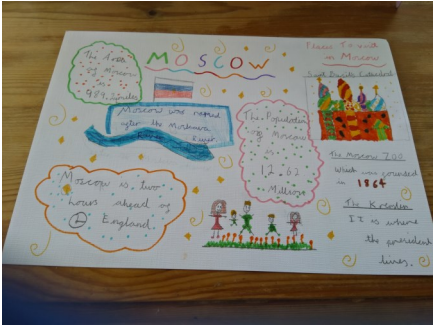 MOSCOW
The Area
of Moscow
is
989.2miles
Moscow was named
after the Moskva
River.
The Population
of Moscow
is
12.62
Million
Moscow is two
hours ahead of
England.
Places To visit
in Moscow
Saint Basil's Cathedral
The Moscow ZOO
Which was founded
in 1864
The Kremlin
IT is where
the president
lives.